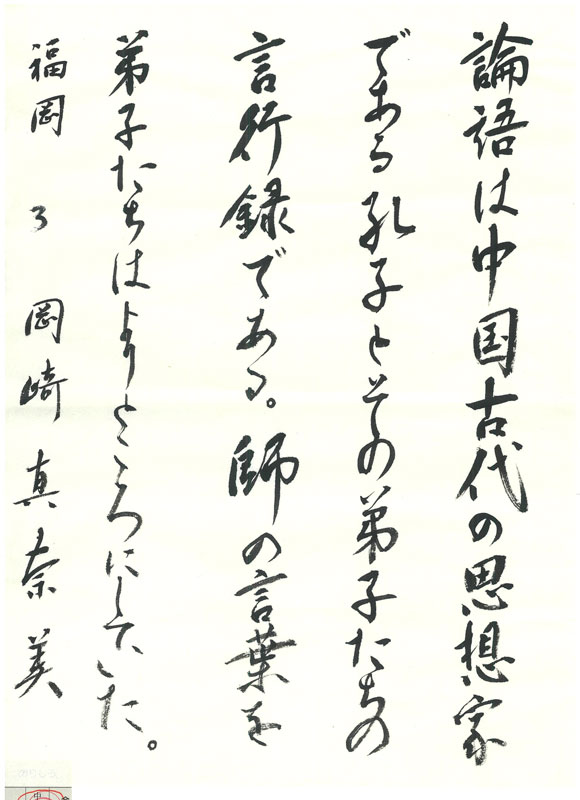 論語は中国古代の思想家
である孔子とその弟子たちの
言行録である。師の言葉を
弟子たちはよりどころにしていた。
福岡 3 岡崎真奈美